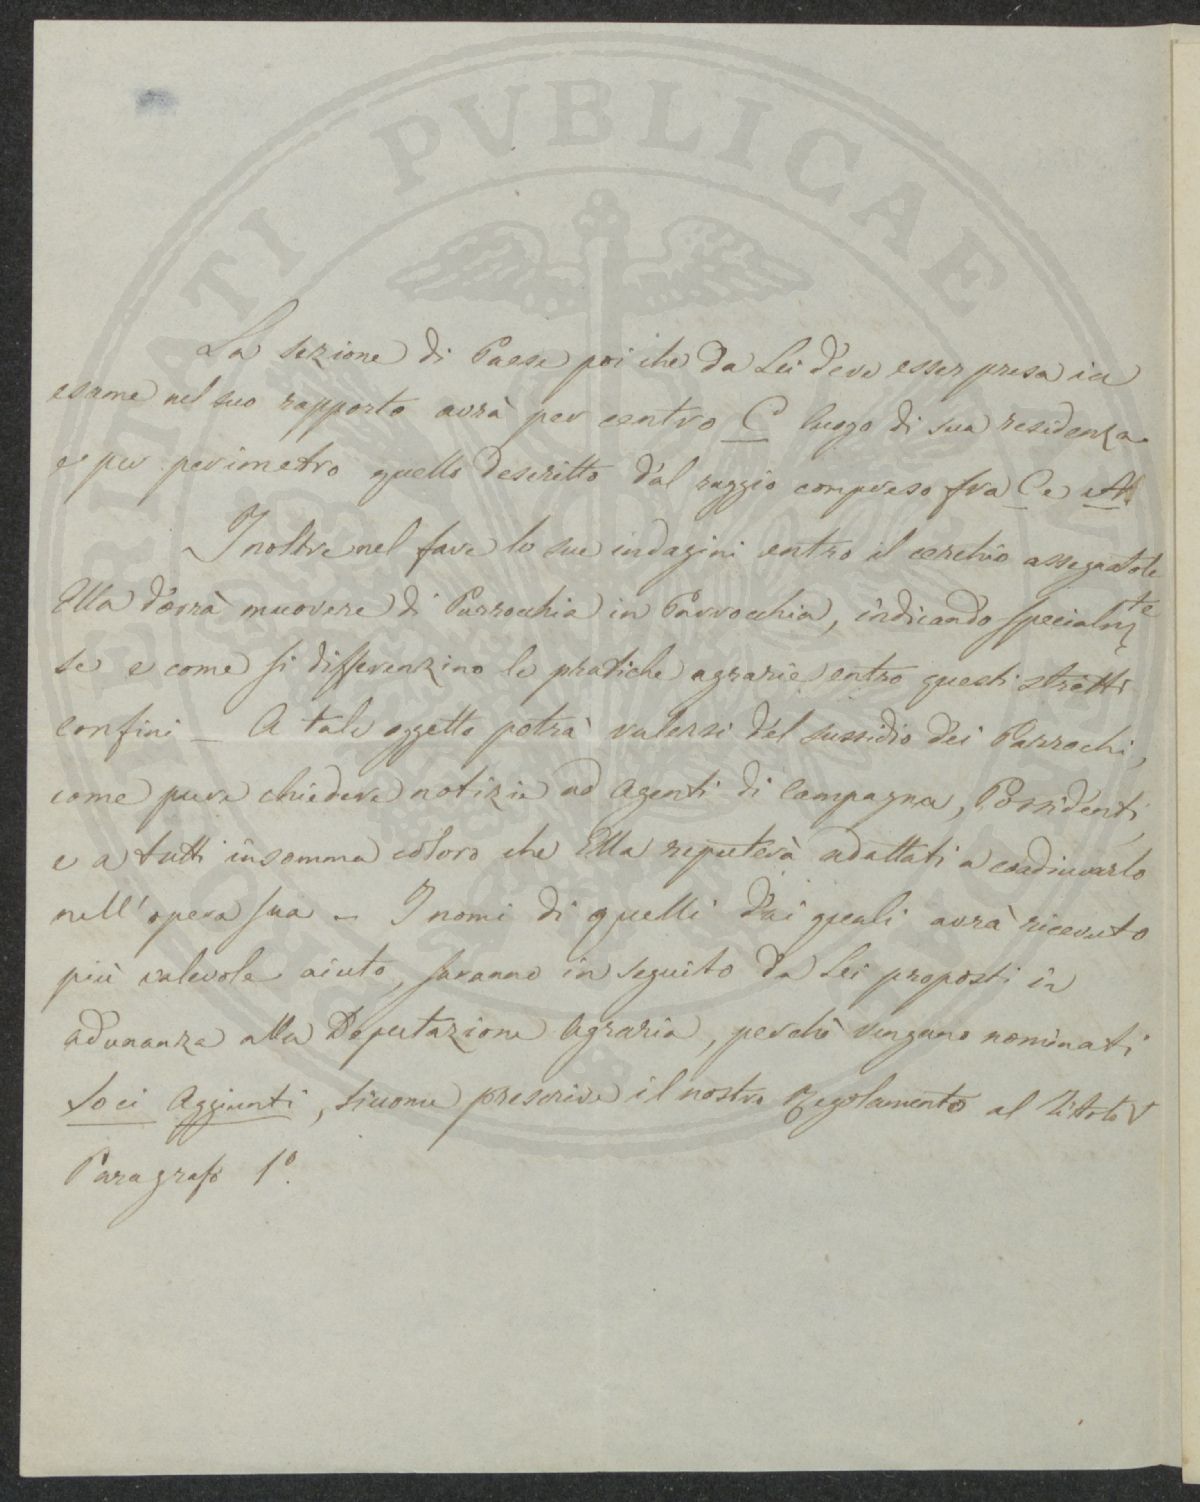 PROSPERITATI PVBLICAE AVGENDAE
La sezione di Paese poi che da Lei deve esser presa in
esame nel suo rapporto avrà per centro C luogo di sua residenza
e per perimetro quello descritto dal raggio compreso fra C e A
Inoltre nel fare le sue indagini entro il cerchio assegnatole
Ella dovrà muovere di Parrocchia in Parrocchia, indicando specialmte
se e come si differenzino le pratiche agrarie entro questi stretti
confini — A tale oggetto potrà valersi del sussidio dei Parrochi,
come pure chiedere notizie ad Agenti di Campagna, Possidenti,
e a tutti insomma coloro che Ella reputerà adattati a coadiuvarlo
nell'opera sua — I nomi di quelli dai quali avrà ricevuto
più valevole aiuto, saranno in seguito da Lei proposti in
adunanza alla Deputazione Agraria, perchè vengano nominati
Soci Aggiunti, siccome prescrive il nostro Regolamento al Titolo V
Paragrafo 1º.